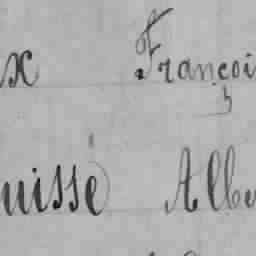 x Françoi
uissé Albe